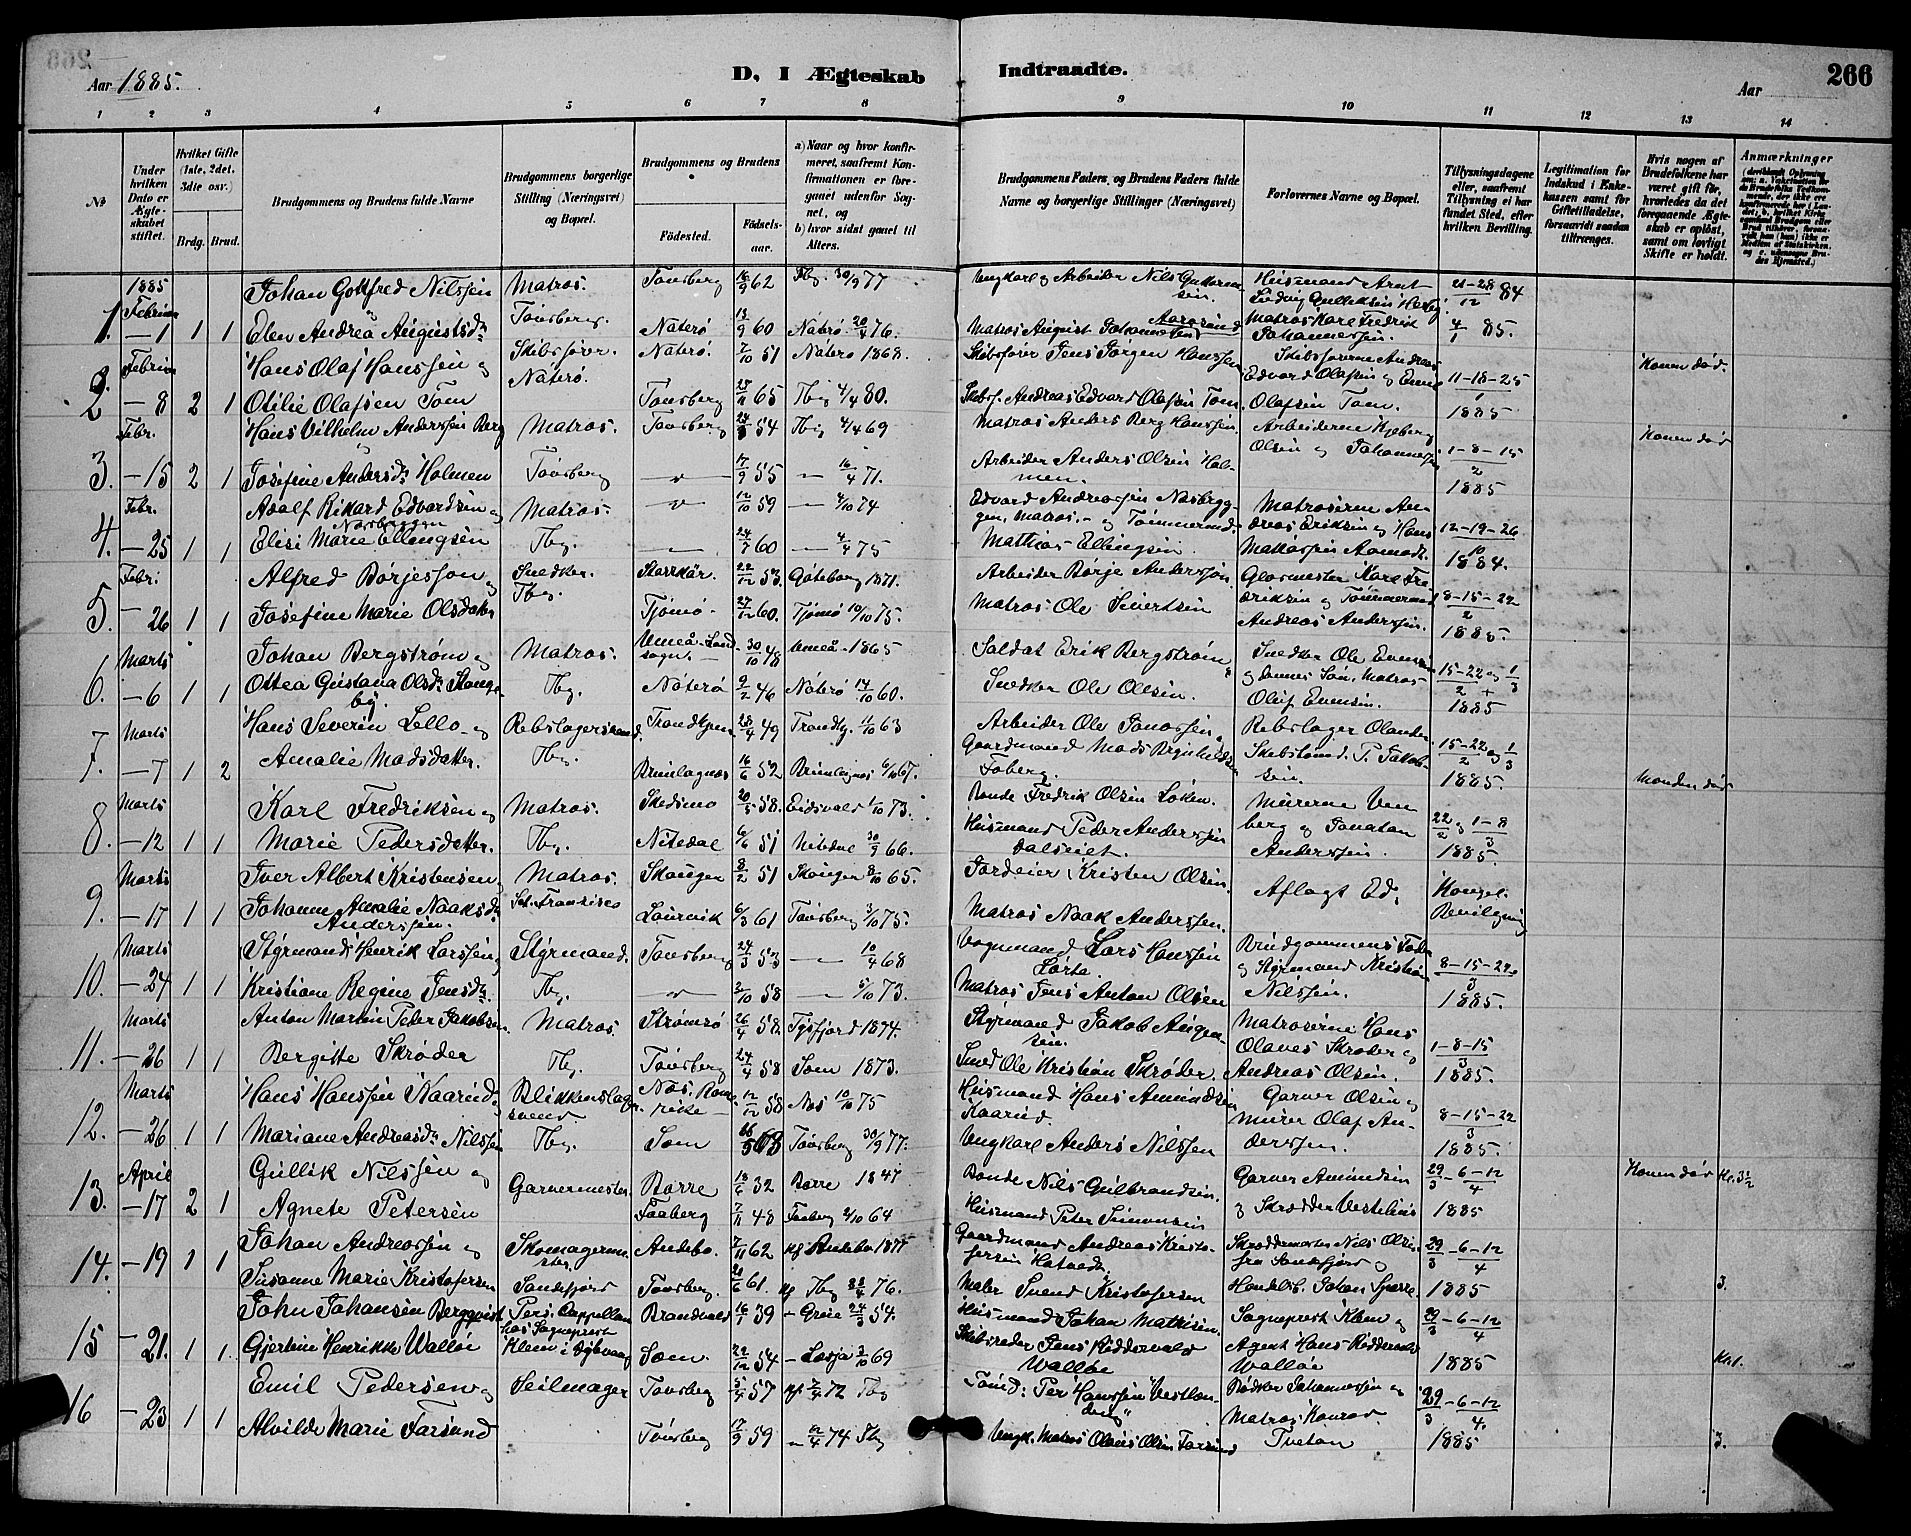 Aar 1885.
D, I Ægteskab Indtraadte.
Aar
266
1 2 3 4 5 6 7 8 9 10 11 12 13 14
No
Under hvilken Dato er Ægteskabet stiftet.
Hvilket Gifte (1ste, 2det, 3die osv.)
Brdg. Brud.
Brudgommens og Brudens fulde Navne
Brudgommens borgerlige Stilling (Næringsvei) og Bopæl.
Brudgommens og Brudens
Fødested.
Fødselsaar.
a) Naar og hvor konfirmeret, saafremt Konfirmationen er foregaaet udenfor Sognet, og
b) hvor sidst gaaet til Alters.
Brudgommens Faders, og Brudens Faders fulde Navne og borgerlige Stillinger (Næringsvei)
Forlovernes Navne og Bopæl.
Tillysningsdagene eller, saafremt Tillysning ei har fundet Sted, efter hvilken Bevilling.
Legitimation for Indskud i Enkekassen samt for Giftetilladelse, forsaavidt saadan tiltrænges.
Hvis nogen af Brudefolkene har været gift før, hvorledes da det foregaaende Ægteskab er opløst, samt om lovligt Skifte er holdt.
Anmærkninger
1885
Johan Gottfred Nilssen Matros. Tønsberg 16/9 62 Tbg. 30/9 77 Ungkarl og Arbeider Nils Guttormsen Husmand Arnt Ludvig Gulliksen Herbg. 21-28/12 84
1. Februar — 1 1 1 Elen Andrea Augustsdr. Tønsberg. Nøterø 13/9 60 Nøterø 20/4 76. Matros August Johannessen Aarøsund Matros Karl Fredrik Johannessen. 4/1 85.
Februar Hans Olaf Hanssen og Skibsfører. Nøterø. 7/10 51 Nøterø 1868. Skibsfører Jens Jørgen Hanssen Skibsførerne Andreas
2. — 8 2 1 Otilie Olafsen Tom Nøterø. Tønsberg 28/11 65 Tbg 4/4 80. Skibsf. Andreas Edvard Olafsen Tom. Edvard Olafsen og Olafsen Tom. 11-18-25/1 1885. Konen død.
Febr. Hans Vilhelm Anderssen Berg Matros. Tønsberg 54 Tbg 4/4 69 Matros Anders Berg Hanssen. Arbeiderne Kjeberg
3. — 15 2 1 Josefine Andersdr. Holmen Tønsberg 17/9 55 — 16/4 71. Arbeider Anders Olsen Holmen. Olsen og Johannessen 1-8-15/2 1885 Konen død
Febr. Adolf Rikard Edvardsen og Matros. 12/10 59 — 4/10 74 Edvard Andreassen Næsbryggen, Matros. og Tømmermd. Matroserne Andreas Eriksen og Hans
4. — 25 1 1 Elise Marie Ellingsen Næsbryggen Tbg. — 24/7 60 — 4/4 75 Mathias Ellingsen. Mathiassen Aamodt. 12-19-26/10 1884.
Febr. Alfred Børjesson og Snedker. Starrkär. 22/12 53. Gøteborg 1871. Arbeider Børje Andersson. Glarmester Karl Fredriksen og Tømmermd
5. — 26 1 1 Josefine Marie Olsdatter Tbg. Tjømø. 27/12 60. Tjømø 10/10 75. Matros Ole Sivertsen Andreas Anderssen. 8-15-22/2 1885.
Marts Johan Bergstrøm og Matros. Umeå Landsogn. — 30/10 48 Umeå 1865 Soldat Erik Bergstrøm Snedker Ole Evensen
6. — 6 1 1 Ottea Gustava Olsdr. Stangeby Tbg. Nøterø 9/2 46 Nøterø 14/10 60. Snedker Ole Olsen. og dennes Søn, Matros Oluf Evensen. 15-22/2 og 1/3 1885
Marts Hans Severin Lello og Rebslagersvend. Trondhjem 28/4 49 Trondhj. 1/10 63 Arbeider Ole Jonassen, Rebslager Olander.
7. — 7 1 2 Amalie Madsdatter. Tbg. Brunlagnæs 16/6 52 Brunlagnæs 6/10 67. Gaardmand Mads Brynhildsen Foberg. Skibstmd. P. Jakobsen. 15-22/2 og 1/3 1885. Manden død
Marts Karl Fredriksen og Matros. Skedsmo 20/5 58. Eidsvold 1/10 73. Bonde Fredrik Olsen Løken. Murerne Venberg og Jonatan
8. — 12 1 1 Marie Pedersdatter. Tbg. Nitedal 6/6 51 Nitedal 30/9 66. Husmand Peder Anderssen Dalseiet. Anderssen. 22/2 og 1-8/3 1885.
Marts Iver Albert Kristensen Matros. Skouger 8/2 51 Skouger 8/10 65. Jordeier Kristen Olsen. Aflagt Ed. Kongel. Bevilgning
9. — 17 1 1 Johanne Amalie Noaksdr. Anderssen. St. Franzisco Laurvik 6/3 61 Tønsberg 3/10 75. Matros Noak Anderssen.
Marts Styrmand Henrik Larssen Styrmand. Tønsberg 24/3 53 — 10/4 68 Vognmand Lars Hanssen Lørte. Brudgommens Fader
10. — 24 1 1 Kristiane Regine Jensdr. Tbg. 3/10 58 — 5/10 73. Matros Jens Anton Olsen og Styrmand Kristian Nilssen. 8-15-22/3 1885.
Marts Anton Martin Peter Jakobsen Matros. Strømsø 26/4 58. Tysfjord 1874. Styrmand Jakob Matroserne Hans
11. — 26 1 1 Bergitte Skrøder Tbg. Tønsberg 24/4 58 Sem 1873. Smed Ole Kristian Skrøder. Olaves Skrøder og Andreas Olsen. 1-8-15/3 1885.
Marts Hans Hanssen Kaarud Blikkenslagersvend Næs. Romerike — 12/12 58 Næs 10/10 75 Husmand Hans Amundsen Kaarud Garver Olsen og
12. — 26 1 1 Mariane Andreasdr. Nilssen Tbg. Sem Tønsberg 30/9 77. Ungkarl Anders Nilssen Murer Olaf Anderssen. 8-15-22/3 1885.
April Gullik Nilssen og Garvermester. Borre 18/6 32 Borre 1847 Bonde Nils Gulbrandsen. Garver Amundsen 29/3-6-12/4 Konen død Kl. 3½
13. — 17 2 1 Agnete Petersen Faaberg 7/11 48 Faaberg 2/10 64 Husmand Peter Simonsen og Skrædder Vestelius 1885
Johan Andreassen og Skomagermester. Andebo. 7/11 62 kf Andebo 1877 Gaardmand Andreas Kristofersen Hatvedt. Skræddermester Nils Olsen fra Sandefjord og 29/3-6-12/4
14. — 19 1 1 Susanne Marie Kristofersen Sandefjord Tønsberg. 28/6 61. kf Tbg 23/4 76. Maler Svend Kristofersen Handelsb. Johan Sparre. 1885 3.
John Johansen Bergqvist Pers. Cappellan hos Sogneprest Brandvold 16/1 39 — Grue 24/3 54. Husmand Johan Mathisen. Sogneprest Klem og 29/3-6-12/4
15 — 21. 1 1. Gjertine Henrikke Walløe Klem i Dybvaag Sem. 29/12 54 — Lesja 3/10 69 Skibsreder Jens Riddervold Walløe Agent Hans Riddervold Walløe 1885 Kl 1.
Emil Pedersen og Seilmager Tønsberg 5/4 57 kf 7/4 72 Tbg Tømd: Per Hanssen Vestlandeng" Bødker Johannessen og 29/3-6-12/4.
16 — 23 1 1 Alvilde Marie Farsund Tønsberg 17/9 59 — 12/4 74 Tbg Ungk. Matros Olaus Olsen Farsund Matros Konrad Tveten 1885 3.